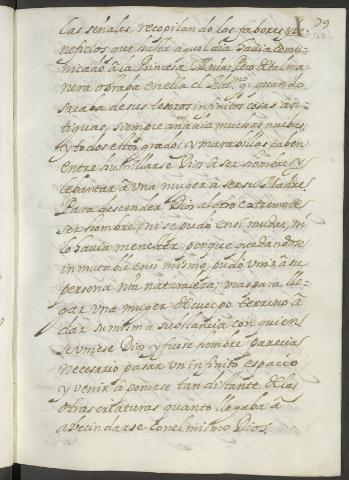 79
las señales, recopilando los fabores y be
neficios que hasta aquel dia havia comu
nicado â la Princesa Maria; Pero de tal ma
nera obraba en ella el Altmo. qe. quando
sacaba de sus tesoros infinitos cosas an
tiguas, siempre añadia muchas nuebas,
y todos estos grados, y marabillas caben
entre humillarse Dios â ser hombre, y
lebantar â una muger â ser su Madre
Para descender Dios al otro extremo de
ser hombre, ni se pudo en si mudar, ni
lo havia menester, porque quedandose
inmutable en si mismo, pudo unir â su
persona nra naturaleza; mas para lle
gar una muger de cuerpo terreno â
dar su misma substancia con quien
se uniese Dios, y fuese hombre, parecia
necesario pasar un infinito espacio
y venir â ponerse tan distante de las
otras criaturas quanto llegaba â
avecindarse con el mismo Dios.